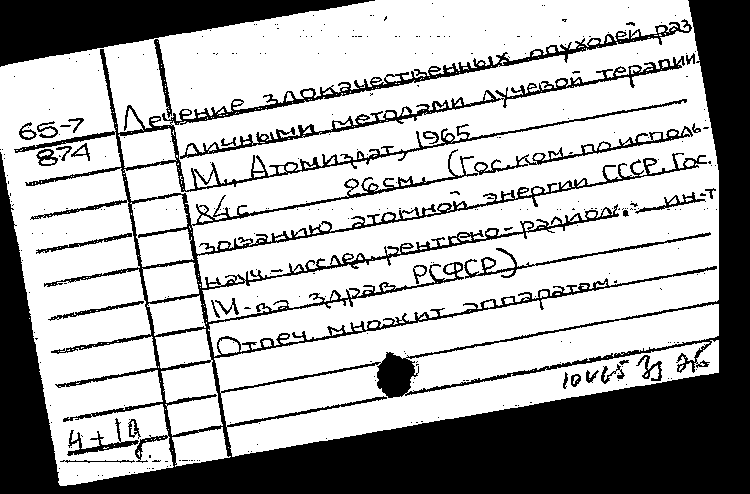 65-7
874
Лечение злокачественных опухолей раз
личными методами лучевой терапии.
М., Атомиздат, 1965
84 с. 26 см. (Гос. ком. по исполь-
зованию атомной энергии СССР. Гос.
науч.-исслед. рентгено-радиол. ин-т
М-ва здрав. РСФСР)
Отпеч. множит. аппаратом.
4+1д.